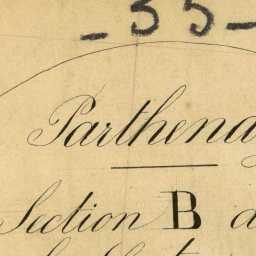 - 35 -
Parthenay
Section B